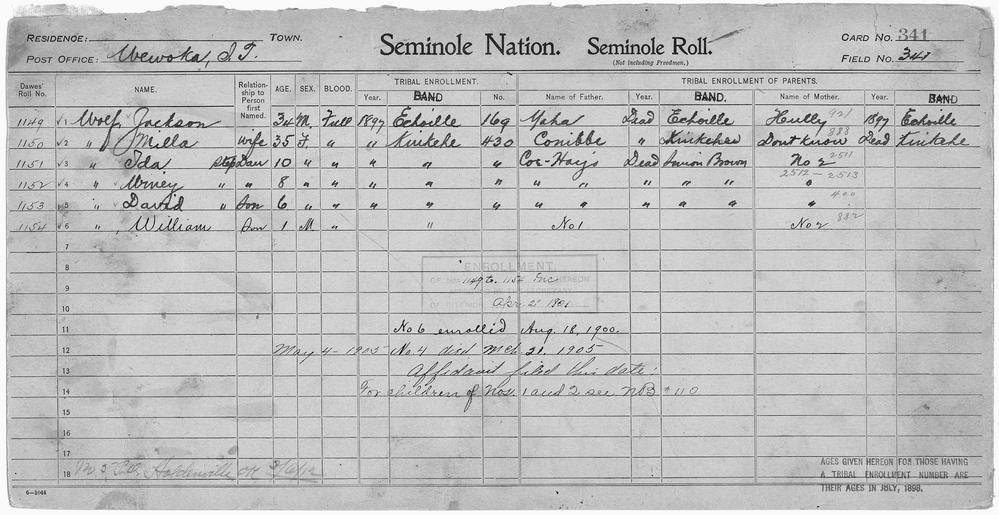 RESIDENCE: TOWN. Seminole Nation. Seminole Roll. CARD NO. 341
POST OFFICE: Wewoka, I.T. (Not including Freedmen.) FIELD NO. 341
Dawes Roll No. NAME. Relationship to Person first Named. AGE. SEX. BLOOD. TRIBAL ENROLLMENT. TRIBAL ENROLLMENT OF PARENTS.
Year. BAND No. Name of Father. Year. BAND. Name of Mother. Year. BAND
1149 √1 Wolf, Jackson 34 M. Full 1897 Echoille 169 Maha Dead Echoille Hully 921 1897 Echoille
1150 √2 " Milla wife 35 F. " " Kinkehe 430 Conibbe " Kinkehee Dont know 888 Dead Kinkehe
1151 √3 " Ida Step Dau 10 " " " " Coe-Hays Dead No 2 2511
1152 √4 " Winey " " 8 " " " " " " " " " " 2512-2513
1153 √5 " David " Son 6 " " " " " " " " " " 400
1154 √6 " William Son 1 M " " No 1 No 2 882
7
8 ENROLLMENT
9 1149 to 1154 Inc
10 Apr. 2 1901
11 No 6 enrolled Aug. 18, 1900.
12 May 4-1905 No. 4 died Mch. 21, 1905
13 Affidavit filed this date:
14 For children of Nos. 1 and 2 see NB #110
15
16
17
18 Holdenville
AGES GIVEN HEREON FOR THOSE HAVING
A TRIBAL ENROLLMENT NUMBER ARE
THEIR AGES IN JULY, 1898.